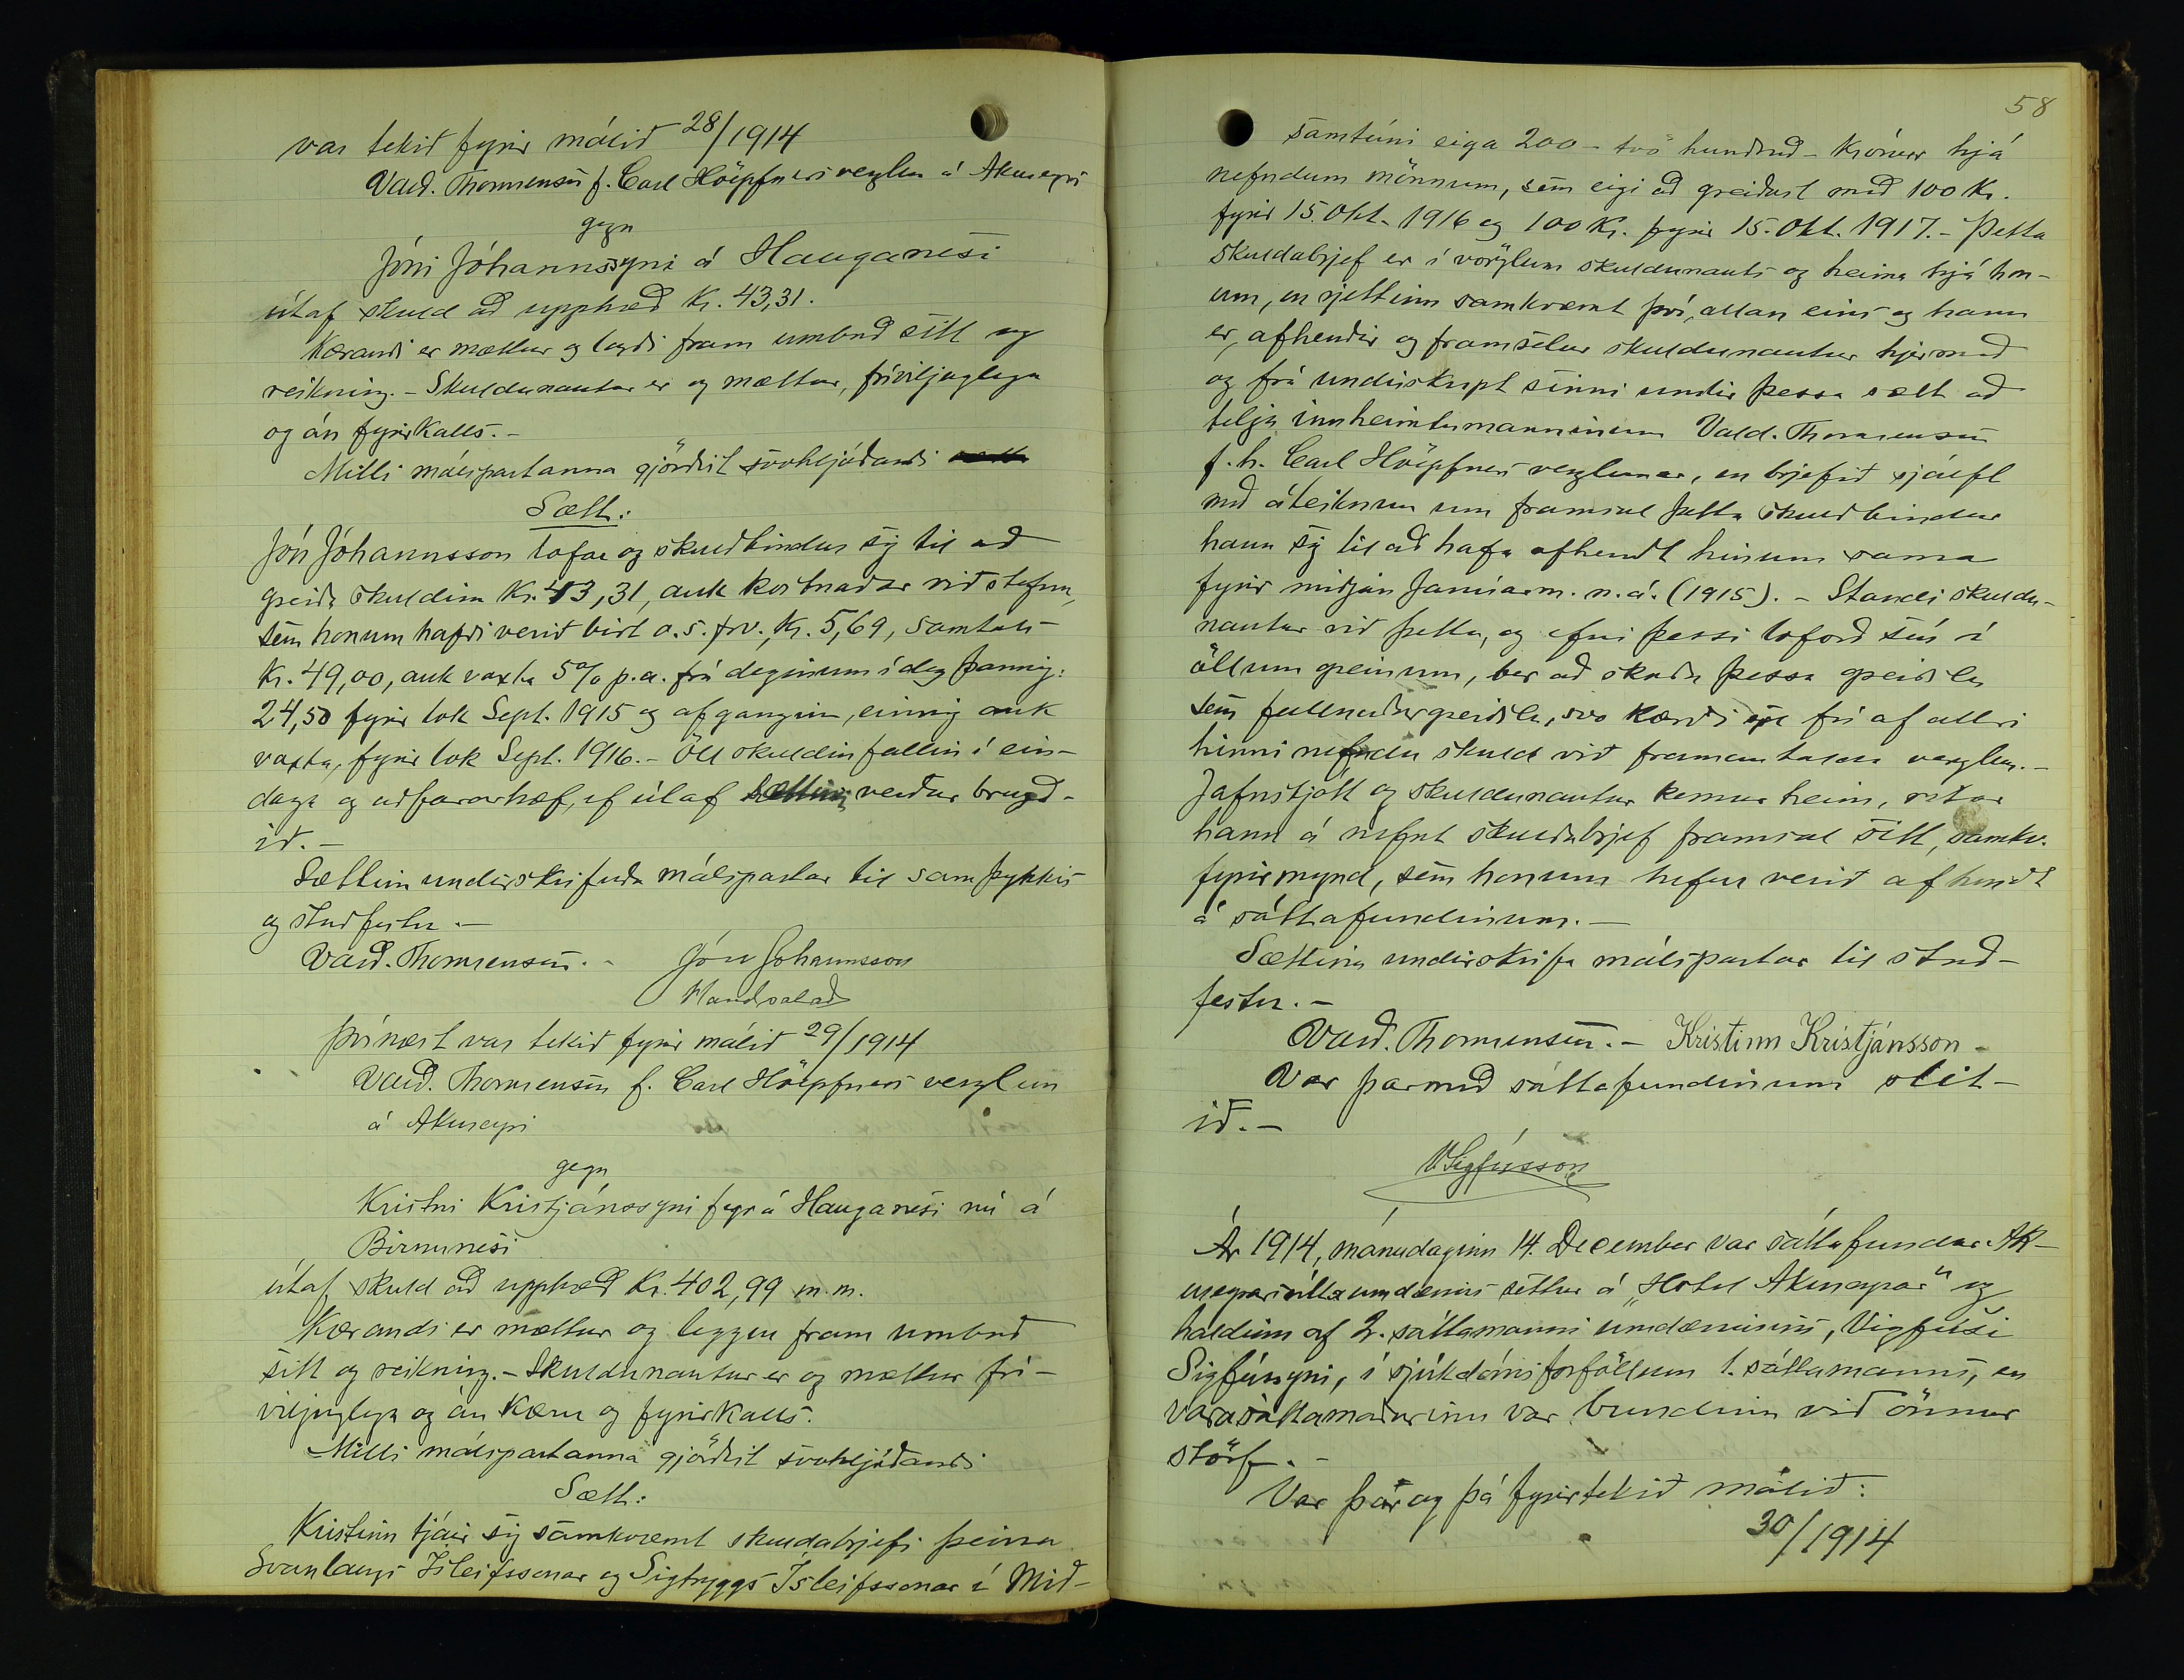 var tekið fyrir málið 28/1914
Vald. Thorarensen f. Carl Höepfners verzlun á Akureyri
gegn
Jóni Jóhannssyni á Hauganesi
útaf skuld að upphæð Kr. 43,31.
Kærandi er mættur og lagði fram umboð sitt og
reikning. - Skuldunautur er og mættur, fríviljuglega
og án fyrirkalls. -
Milli málspartanna gjörðist svohljóðandi
Sætt:
Jón Jóhannsson lofar og skuldbindur sig til að
greiða skuldina Kr. 43,31, auk kostnaðar við stefnu,
sem honum hafði verið birt o.s.frv. Kr. 5,69, samtals
Kr. 49,00, auk vaxta 5% p.a. frá deginum í dag þannig:
24,50 fyrir lok Sept. 1915 og afganginn, einnig auk
vaxta, fyrir lok Sept. 1916. - Öll skuldin fallin í ein-
daga og aðfararhæf, ef útaf verður brugð-
ið. -
Sættina underskrifuðu málspartar til samþykkis
og staðfestu. -
Vald. Thorarensen. - Jón Johannsson
Handsalað
Þvínæst var tekið fyrir málið 29/1914
Vald. Thorarensen f. Carl Höepfners verzlun
á Akureyri
gegn
Kristni Kristjánssyni fyr á Hauganesi nú á
Birnunesi
útaf skuld að upphæð Kr. 402,99 m.m.
Kærandi er mættur og leggur fram umboð
sitt og reikning. - Skuldunautur er og mættur frí-
viljuglega og án kæru og fyrirkalls.
Milli málspartanna gjörðist svohljóðandi
Sætt:
Kristinn tjáir sig samkvæmt skuldabrjefi þeirra
Svanlaugs Ísleifssonar og Sigtryggs Ísleifssonar í Mið-
58
samtúni eiga 200 - tvö hundruð - krónur hjá
nefndum mönnum, sem eigi að greiðast með 100 Kr.
fyrir 15. Okt. 1916 og 100 Kr. fyrir 15. Okt. 1917. - Þetta
skuldabrjef er í vörzlum skuldunauts og heima hjá hon-
um, en rjettinn samkvæmt því, allan eins og hann
er, afhendir og framselur skuldunautur hjermeð
og frá undirskript sinni undir þessa sætt að
telja innheimtumanninum Vald. Thorarensen
f.h. Carl Höepfners verzlunar, en brjefið sjálft
með áteiknun um framsal þetta skuldbindur
hann sig til að hafa afhendt hinum sama
fyrir miðjan Janúarm. n.á. (1915). - Standi skuldu-
nautur við þetta, og efni þessi loforð sín í
öllum greinum, ber að skoða þessa greiðslu
sem fullnaðargreiðslu, svo kærði sje frí af allri
hinni nefndu skuld við framantalda verzlun. -
Jafnskjótt og skuldunautur kemur heim, ritar
hann á nefnt skuldabrjef framsal sitt, samkv.
fyrirmynd, sem honum hefur verið afhendt
á sáttafundinum. -
Sættina underskrifa málspartar til stað-
festu. -
Vald. Thorarensen. - Kristinn Kristjánsson -
Var þarmeð sáttafundinum slit-
ið. -
VSigfússon
Ár 1914, mánudaginn 14. December var sáttafundur Ak-
ureyrarsáttaumdæmis settur á „Hotel Akureyrar" og
haldinn af 2. sáttamanni umdæmisins, Vigfúsi
Sigfússyni, í sjúkdómsforföllum 1. sáttamanns, en
varasáttamaðurinn var bundinn við önnur
störf. -
Var þar og þá fyrirtekið málið:
30/1914